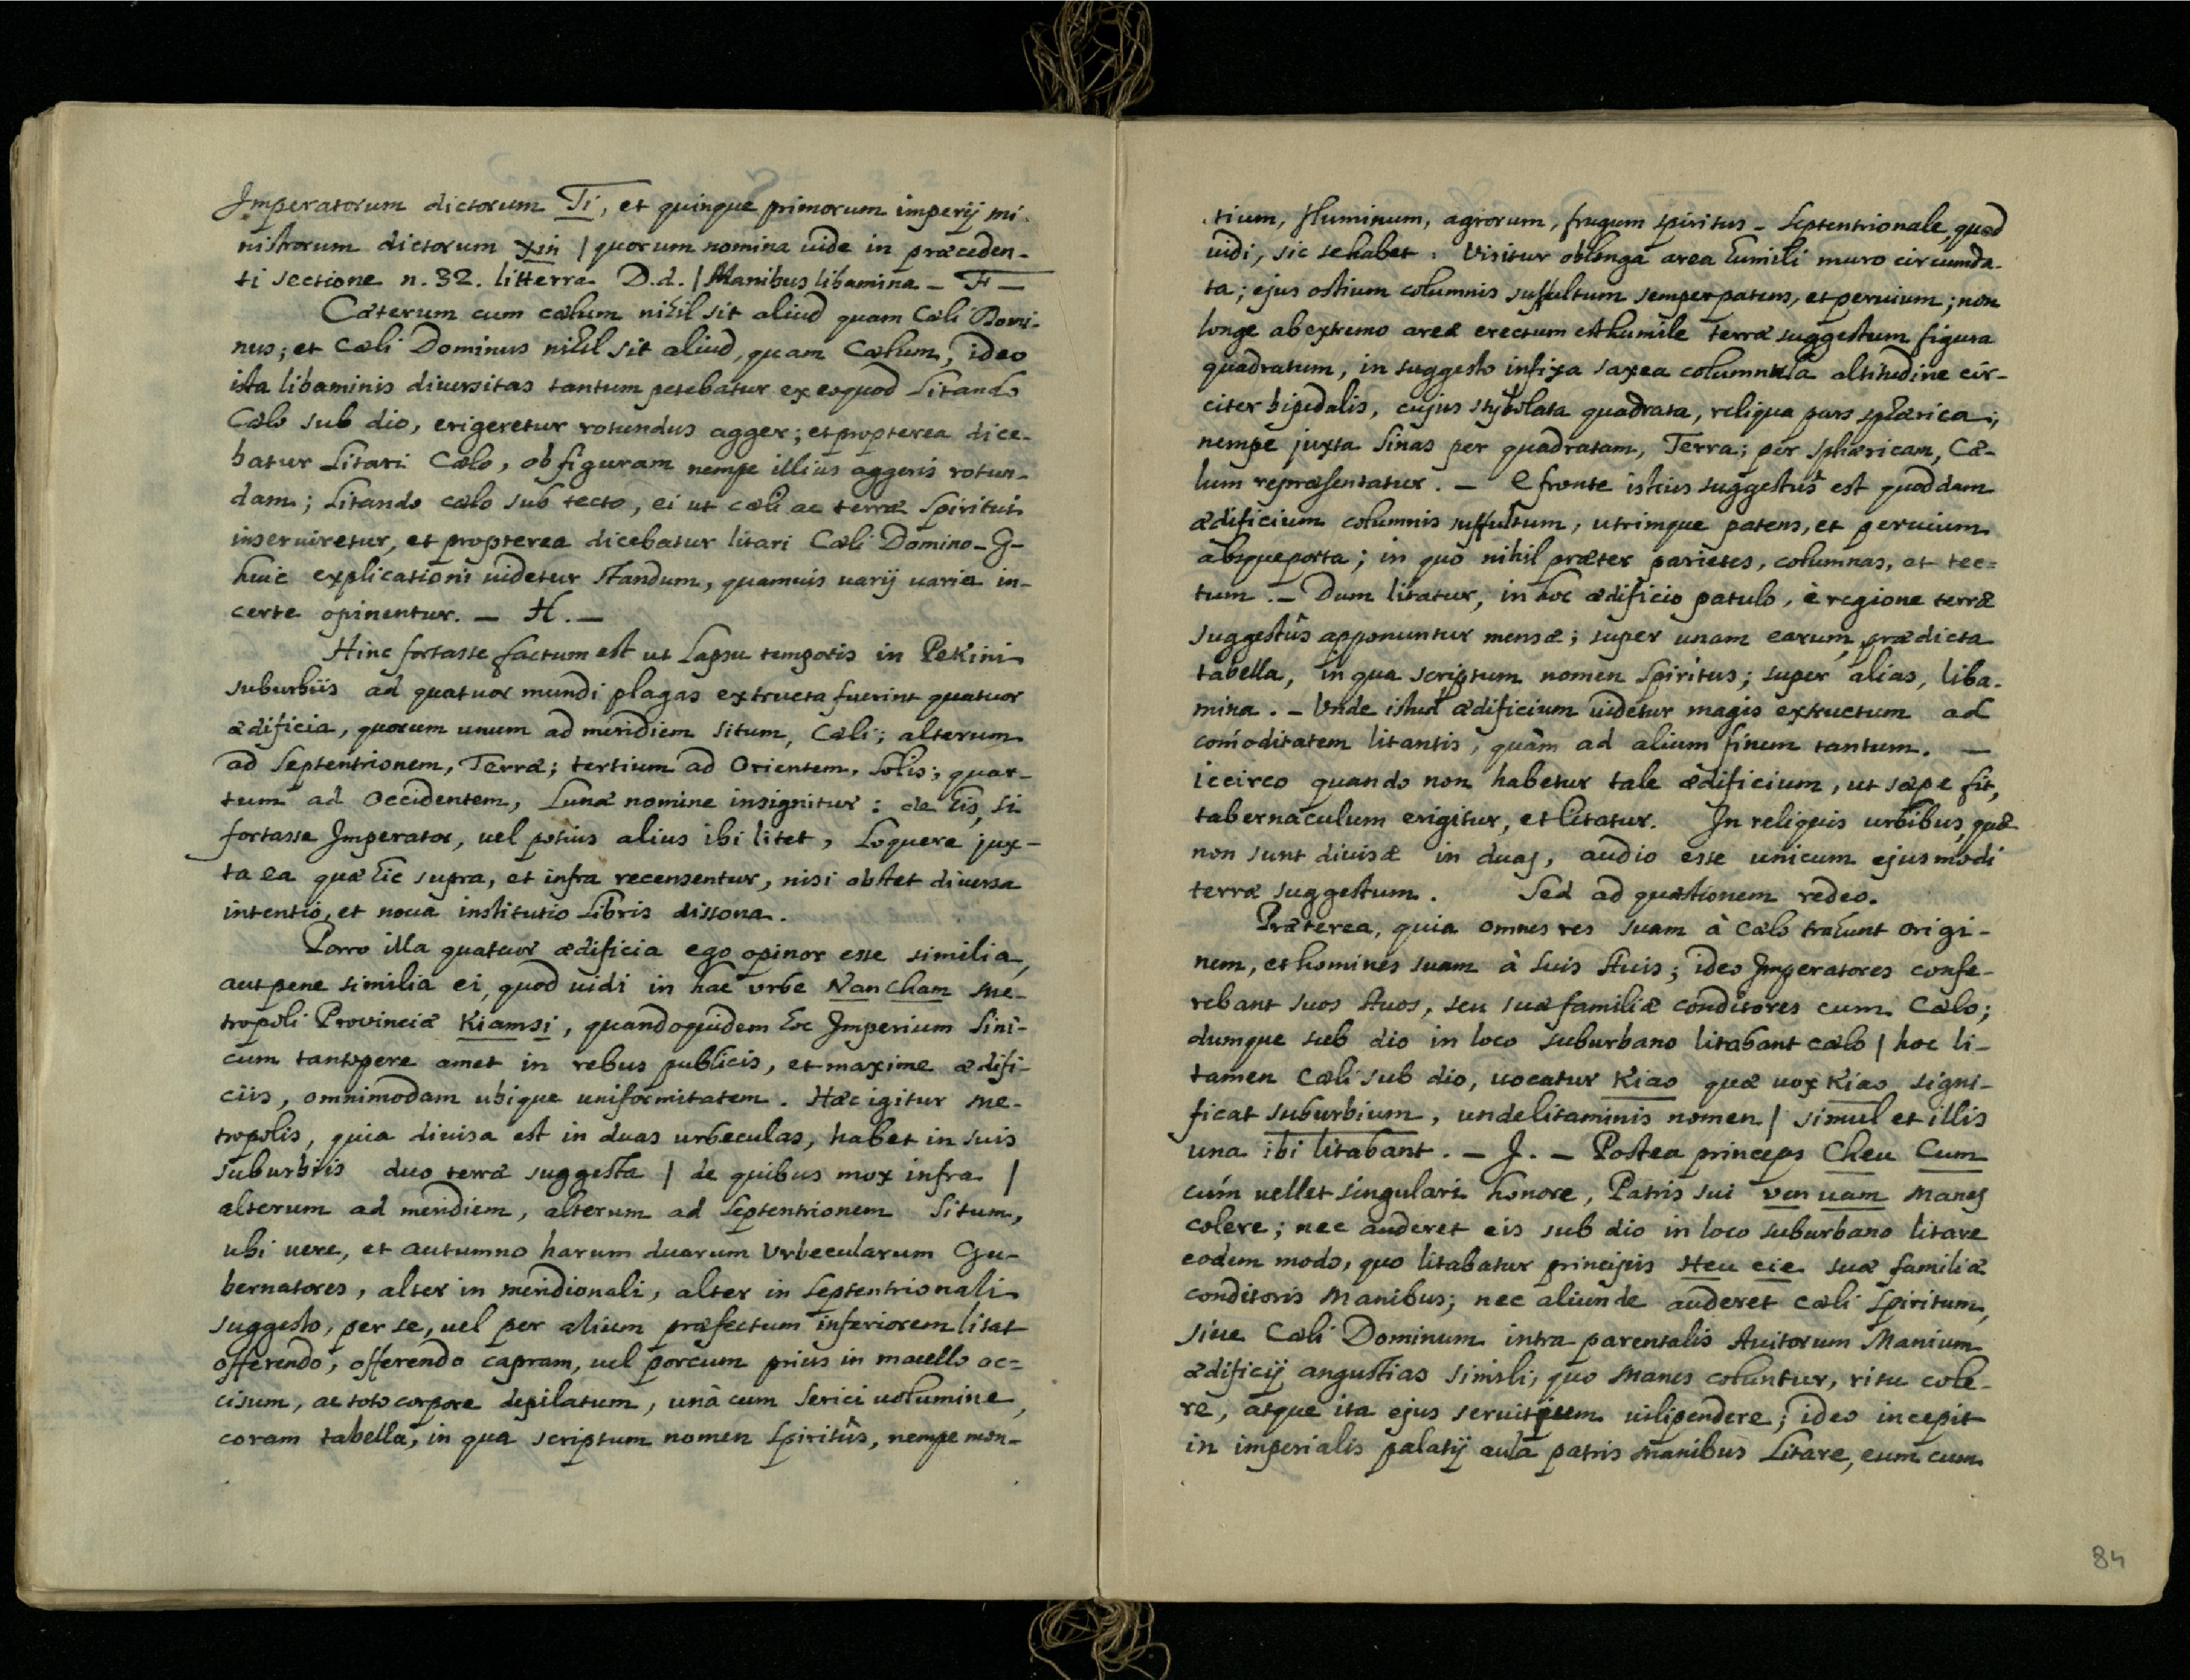 Imperatorum dictorum Ti, et quinque primorum imperij mi-
nistrorum dictorum xin | quorum nomina uide in præceden-
ti sectione n. 32. litterra D.d. | Manibus libamina _ F _
Cæterum cum cælum nihil sit aliud quam Cæli Domi-
nus; et Cæli Dominus nihil sit aliud, quam Cælum, ideo
ista libaminis diuersitas tantum petebatur ex eo quod Litando
Cælo sub dio, erigeretur rotundus agger; et propterea dice-
batur Litari Cælo, ob figuram nempe illius aggeris rotun-
dam; Litando cælo sub tecto, ei ut cæli ac terræ Spiritui
inseruiretur, et propterea dicebatur litari Cæli Domino _ G _
huic explicationi uidetur standum, quamuis uarij uaria in-
certe opinentur. _ H. _
Hinc fortasse factum est ut Lapsu temporis in Pekini
suburbiis ad quatuor mundi plagas extructa fuerint quatuor
ædificia, quorum unum ad meridiem situm, Cæli; alterum
ad Septentrionem, Terræ; tertium ad Orientem, Solis; quar-
tum ad Occidentem, Lunæ nomine insignitur: de his, si
fortasse Imperator, uel potius alius ibi litet, Loquere jux-
ta ea quæ hic supra, et infra recensentur, nisi obstet diuersa
intentio, et noua institutio Libris dissona.
Porro illa quatuor ædificia ego opinor esse similia,
aut pene similia ei, quod uidi in hac vrbe Nan cham me-
tropoli Prouinciæ Kiamsi, quandoquidem hoc Imperium Sini-
cum tantopere amet in rebus publicis, et maxime ædifi-
ciis, omnimodam ubique uniformitatem. Hæc igitur me-
tropolis, quia diuisa est in duas urbeculas, habet in suis
suburbiis duo terræ suggesta | de quibus mox infra |
alterum ad meridiem, alterum ad Septentrionem Situm,
ubi uere, et autumno harum duarum Vrbecularum Gu-
bernatores, alter in meridionali, alter in Septentrionali
suggesto, per se, uel per alium præfectum inferiorem litat
offerendo, offerendo capram, uel porcum prius in macello oc-
cisum, ac toto corpore depilatum, unâ cum Serici uolumine,
coram tabella, in qua scriptum nomen Spiritûs, nempe mon-
tium, fluminum, agrorum, frugum spiritus _ Septentrionale, quod
uidi, sic se habet: Visitur oblonga area humili muro circumda-
ta; ejus ostium columnis suffultum semper patens, et peruium; non
longe ab extremo areæ erectum est humile terræ suggestum figura
quadratum, in suggesto infixa saxea columnula altitudine cir-
citer bipedalis, cujus stybolata quadrata, reliqua pars sphærica;
nempe juxta Sinas per quadratam, Terra; per sphæricam, Cæ-
lum repræsentatur. _ e fronte istius suggestûs est quoddam
ædificium columnis suffultum, utrimque patens, et peruium
absque porta; in quo nihil præter parietes, columnas, et tec-
tum. _ Dum litatur, in hoc ædificio patulo, è regione terræ
suggestûs apponuntur mensæ; super unam earum, prædicta
tabella, in qua scriptum nomen Spiritus; super alias, liba-
mina. _ Vnde istud ædificium uidetur magis extructum ad
comoditatem litantis, quâm ad alium finem tantum. _
iccirco quando non habetur tale ædificium, ut sæpe fit,
tabernaculum erigitur, et litatur. In reliquis urbibus, quæ
non sunt diuisæ in duas, audio esse unicum ejusmodi
terræ suggestum. Sed ad quæstionem redeo.
Præterea, quia omnes res suam à Cælo trahunt origi-
nem, et homines suam à Suis Auis; ideo Imperatores confe-
rebant suos Auos, seu suæ familiæ conditores cum Cælo;
dumque sub dio in loco suburbano litabant cælo | hoc li-
tamen Cæli sub dio, uocatur Kiao quæ uox Kiao signi-
ficat suburbium, unde litaminis nomen | simul et illis
una ibi litabant. _ J. _ Postea princeps Cheu Cum
cum uellet singulari honore, Patris sui ven uam Manes
colere; nec auderet eis sub dio in loco suburbano litare
eodem modo, quo litabatur principis Heu cie suæ familiæ
conditoris Manibus; nec aliunde auderet cæli Spiritum,
siue Cæli Dominum intra parentalis Auitorum Manium
ædificij angustias simili, quo Manes coluntur, ritu cole-
re, atque ita ejus seruitium uilipendere; ideo incepit
in imperialis palatij aula patris manibus Litare, eum cum
84